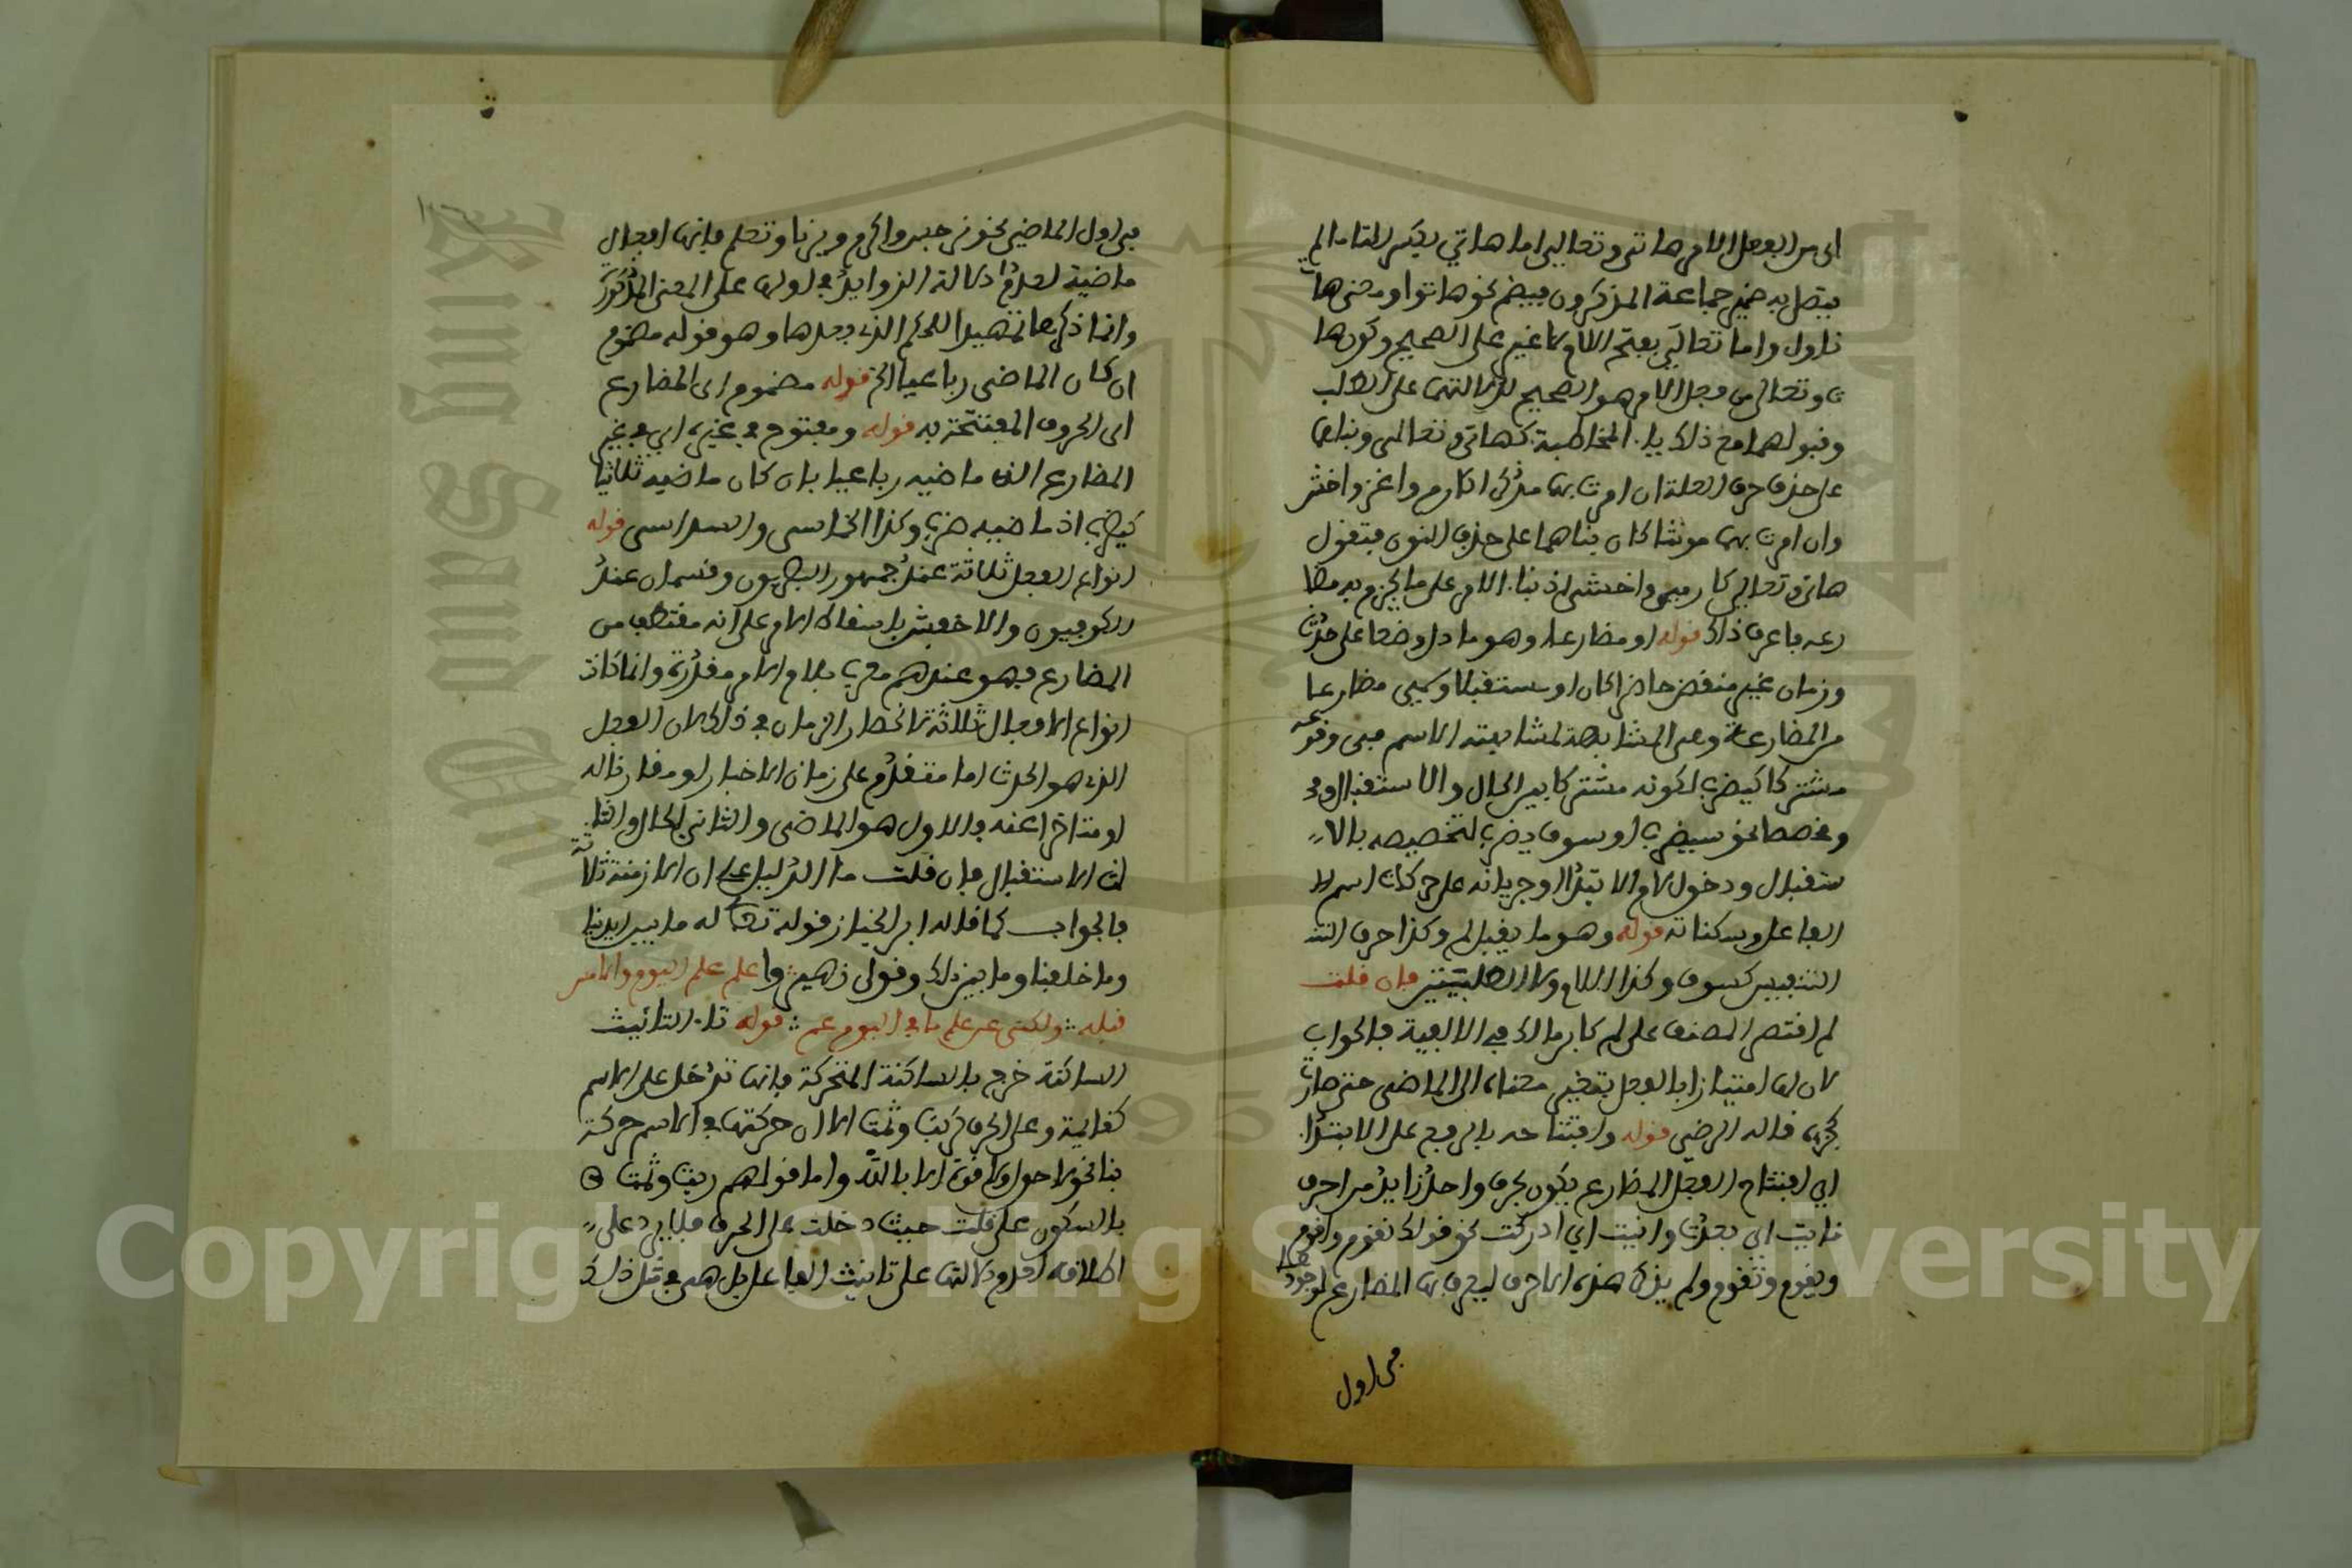 اى من الفعل الامر هاتى وتعالى اما هاتي بكسر التا ما لم
يتصل به ضمير جماعة المذكرون فيضم نحو هاتوا ومعنى هات
ناول واما تعالى بفتح اللام لا غير على الصحيح وكون ها
ت وتعالى من فعل الامر هو الصحيح لدلالتهما على الطلب
وقبولهما مع ذلك يا المخاطبة كهاتي وتعالى وبناهما
على حذف حرف العلة ان امرت بهما مذكرا كارم واغز واخش
وان امرت بهما مونثا كان بناهما على حذف النون فتقول
هاتي وتعالى كارمي واخشي اذ بنا الامر على ما يجزم به مضا
رعه فاعرف ذلك قوله او مضارعا وهو ما دل وضعا على حدث
وزمان غير منقض حاضرا كان او مستقبلا وسمي مضارعا
من المضارعة وهي المشابهة لمشابهته الاسم في وقوعه
مشتركا كيضرب لكونه مشتركا بين الحال والاستقبال و
ومخصصا نحو سيضرب او سوف يضرب لتخصيصه بالا
ستقبال ودخول لام الابتدا وجريانه على حركات اسم
الفاعل وسكناته قوله وهو ما يقبل لم وكذا حرف التنـ
التنفيس كسوف وكذا اللام ولا الطلبيتين فان قلت
لم اقتصر المصنف على لم كابن مالك في الالفية فالجواب
لان لها امتيازا بالفعل بتغيير معناه الى الماضى حتى صارت
كجزئه قاله الرضي قوله وافتتاحه بالرفع على الابتدا
اي افتتاح الفعل المضارع يكون بحرف واحد زايد من احرف
نايت اي بعدت وانيت اي ادركت نحو قولك نقوم واقوم
ويقوم وتقوم ولم يذكر هذه الاحرف ليعرف بها المضارع لوجودها
في اول
في اول الماضي نحو نرجس واكرم ويرنا وتعلم فانها افعال
ماضية لعدم دلالة الزوايد في اولها على المعنى المذكورة
وانما ذكرها تمهيدا للحكم الذي بعدها وهو قوله مضموم
ان كان الماضى رباعيا الخ قوله مضموم اى المضارع
اى الحروف المفتتحة به قوله ومفتوح في غيره اي في غير
المضارع الذى ماضيه رباعيا بان كان ماضيه ثلاثيا
كيضرب اذ ماضيه ضرب وكذا الخماسى والسداسى قوله
انواع الفعل ثلاثة عند جمهور البصريون وقسمان عند
الكوفيون والاخفش باسقاط الامر على انه مقتطع من
المضارع فهو عندهم معرب بلام الامر مقدرة وانما كانت
انواع الافعال ثلاثة لانحصار الزمان في ذلك لان الفعل
الذي هو الحدث اما متقدم على زمان الاخبار او مقارنا له
او متاخرا عنه فالاول هو الماضى والثانى الحال والثا
لث الاستقبال فان قلت ما الدليل على ان الازمنة ثلاثة
فالجواب كما قاله ابن الخباز قوله تعالى له ما بين ايدينا
وما خلفنا وما بين ذلك وقول زهير واعلم علم اليوم والامس
قبله ولكنى عن علم ما في اليوم عم قوله تا التانيث
الساكنة خرج بالساكنة المتحركة فانها تدخل على الاسم
كقايمة وعلى الحرف كربت وثمت الا ان حركتها في الاسم حركة
بنا نحو لا حول ولا قوة الا بالله واما قولهم ربت وثمت
بالسكون على قلت حيث دخلت على الحرف فلا يرد على
اطلاقه لعدم دلالتها على تانيث الفاعل بل هى في مثل ذلك
Copyright © King Saud University
King Saud University
1957